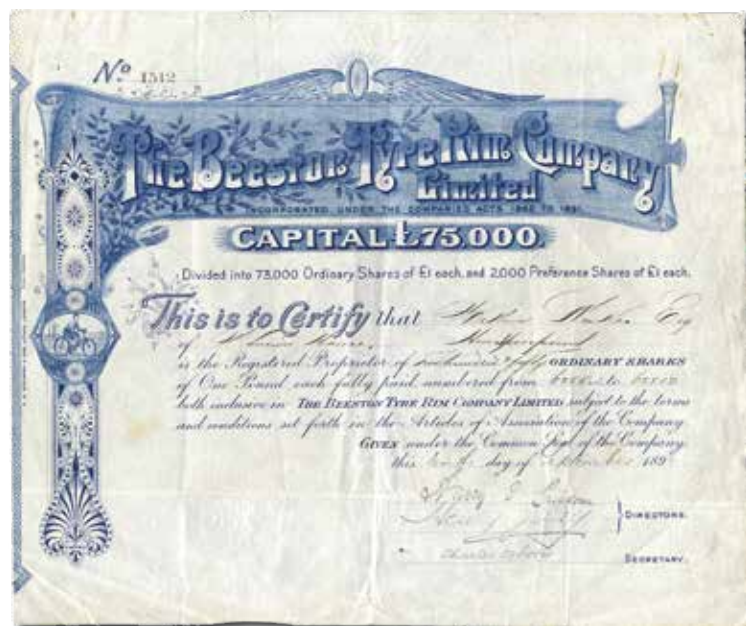 No. 1512
The Beeston Tyre Rim Company
Limited
INCORPORATED UNDER THE COMPANIES ACTS 1862 TO 1891
CAPITAL £75,000.
Divided into 73,000 Ordinary Shares of £1 each, and 2,000 Preference Shares of £1 each.
This is to Certify that Esq
of
is the Registered Proprietor of ORDINARY SHARES
of One Pound each fully paid numbered from to
both inclusive in THE BEESTON TYRE RIM COMPANY LIMITED subject to the terms
and conditions set forth in the Articles of Association of the Company
GIVEN under the Common Seal of the Company
this day of September 189
Harry J
DIRECTORS.
Charles Osborn
SECRETARY.